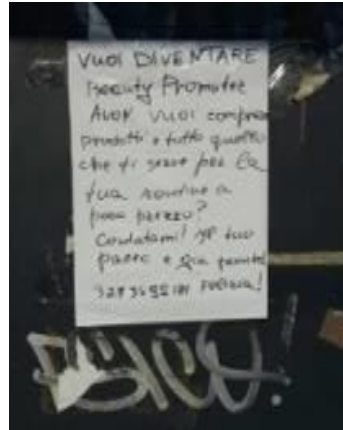 VUOI DIVENTARE
Beauty Promoter
AVON VUOI comprare
prodotti e tutto quello
che ti serve per la
tua routine a
poco prezzo?
Contattami! il tuo
pacco e